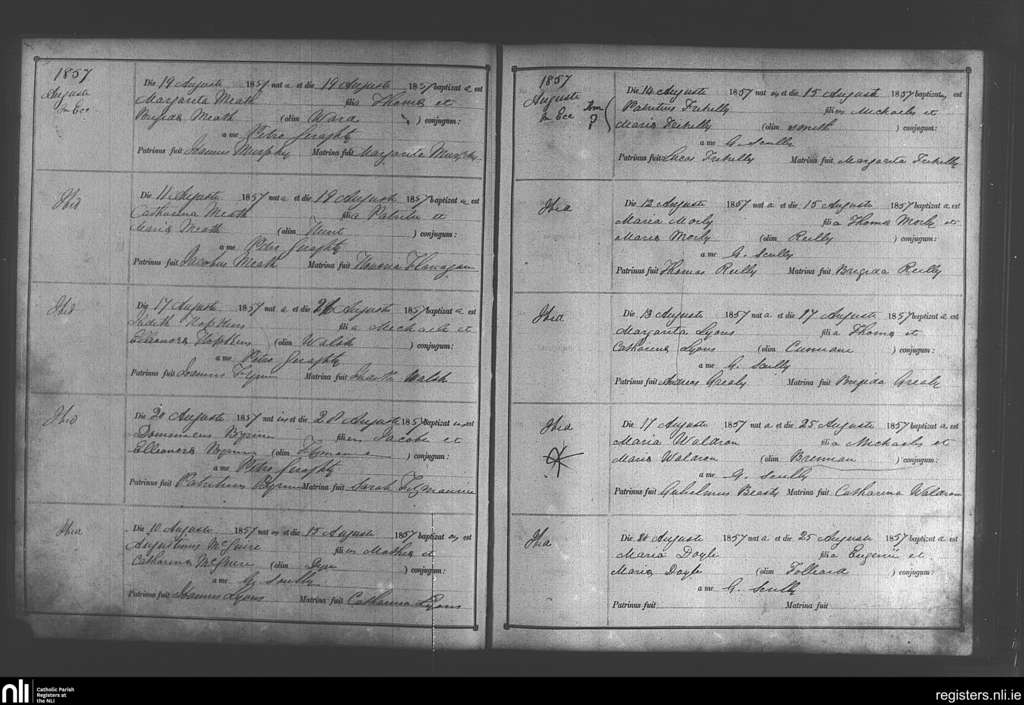 1857
Auguste
in Ecc
Die 19 Auguste 1857 nat a et die 19 Auguste 1857 baptizat a est
Margarita Meath fili a Thoma et
Brigida Meath (olim Ward ) conjugum:
a me Petro Geraghty
Patrinus fuit Joannes Murphy Matrina fuit Margarita Murphy
Ibid
Die 11 Auguste 1857 nat a et die 19 Auguste 1857 baptizat a est
Catharina Meath fili a Patritio et
Maria Meath (olim Hunt ) conjugum:
a me Petro Geraghty
Patrinus fuit Jacobus Meath Matrina fuit Honoria Flanagan
Ibid
Die 17 Auguste 1857 nat a et die Auguste 1857 baptizat a est
Judith Hopkins fili a Michaele et
Elleonora Hopkins (olim Walsh ) conjugum:
a me Petro Geraghty
Patrinus fuit Joannes Flynn Matrina fuit Walsh
Ibid
Die 20 Auguste 1857 nat us et die 28 Auguste 1857 baptizat us est
Dominicus Byrne fili us Jacobo et
Elleonora Byrne (olim ) conjugum:
a me Petro Geraghty
Patrinus fuit Patritius Byrne Matrina fuit Sarah Fitzmaurice
Ibid
Die 10 Auguste 1857 nat us et die 15 Auguste 1857 baptizat us est
Augustinus McGuire fili us Mathea et
Catharina McGuire (olim ) conjugum:
a me G. Scully
Patrinus fuit Joannes Lyons Matrina fuit Catharina Lyons
1857
Auguste
in Ecc
?
Die 14 Auguste 1857 nat us et die 15 Auguste 1857 baptizat us est
Patritius fili us Michaele et
Maria (olim Smith ) conjugum:
a me G. Scully
Patrinus fuit Lucas Matrina fuit Margarita
Ibid
Die 12 Auguste 1857 nat a et die 15 Auguste 1857 baptizat a est
Maria Morly fili a Thoma Morly et
Maria Morly (olim Reilly ) conjugum:
a me G. Scully
Patrinus fuit Thomas Reilly Matrina fuit Brigida Reilly
Ibid
Die 13 Auguste 1857 nat a et die 17 Auguste 1857 baptizat a est
Margarita Lyons fili a Thoma et
Catharina Lyons (olim ) conjugum:
a me G. Scully
Patrinus fuit Andreas Grealy Matrina fuit Brigida Grealy
Ibid
Die 11 Auguste 1857 nat a et die 25 Auguste 1857 baptizat a est
Maria Waldron fili a Michaele et
Maria Waldron (olim Brennan ) conjugum:
a me G. Scully
Patrinus fuit Gulielmus Beasty Matrina fuit Catharina Waldron
Ibid
Die 21 Auguste 1857 nat a et die 25 Auguste 1857 baptizat a est
Maria Doyle fili a Eugenio et
Maria Doyle (olim Folliard ) conjugum:
a me G. Scully
Patrinus fuit Matrina fuit
nli
Catholic Parish
Registers at
the NLI
registers.nli.ie